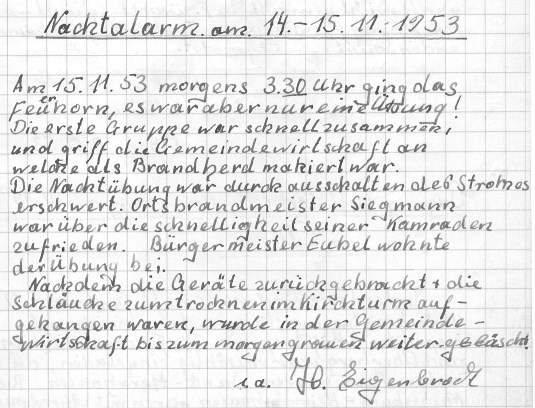 Nachtalarm. am. 14.-15.11.-1953
Am 15.11.53 morgens 3.30 Uhr ging das
Feuerhorn, es war aber nur eine Übung!
Die erste Gruppe war schnell zusammen,
und griff die Gemeindewirtschaft an
welche als Brandherd makiert war.
Die Nachtübung war durch ausschalten des Stromes
erschwert. Ortsbrandmeister Siegmann
war über die schnelligkeit seiner Kamraden
zufrieden. Bürgermeister Eubel wohnte
der Übung bei.
Nachdem die Geräte zurückgebracht + die
Schläuche zum trocknen im Kirchturm auf-
gehangen waren, wurde in der Gemeinde-
wirtschaft bis zum morgengrauen weiter gelöscht.
Eigenbrodt